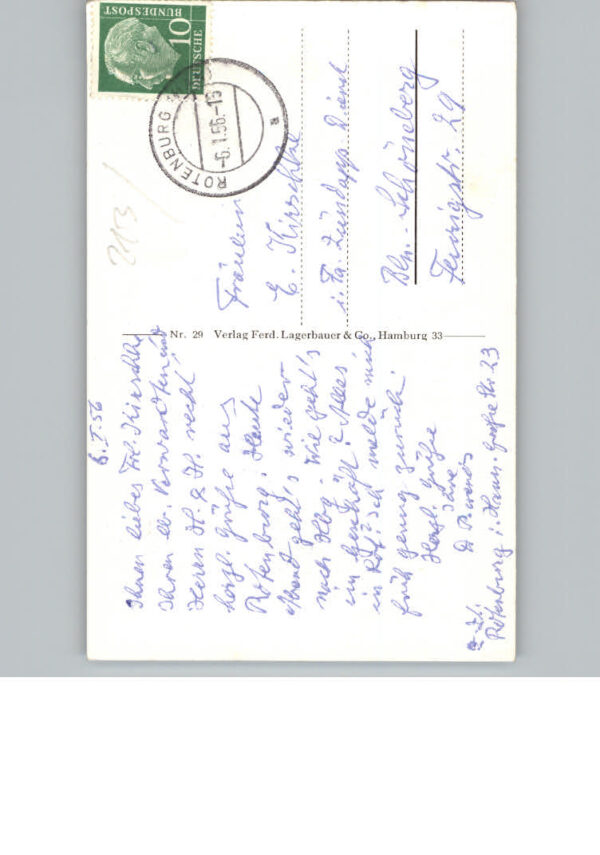 6.I.56
Ihnen liebes Frl. Kirschke
Ihren lb. Verwandten und
Herrn H. & H. recht
herzl. Grüße aus
Rotenburg. Heute
Abend geht's wieder
nach Hbg. Wie geht's
im Geschäft? Alles
in Ich melde mich
früh genug zurück!
Herzl. Grüße
Ihre
z. Zt.
Rotenburg i. Hann. Große Str. 23
Nr. 29 Verlag Ferd. Lagerbauer & Co., Hamburg 33
2113
DEUTSCHE
BUNDESPOST
10
ROTENBURG
-6.1.56.-15
a
Fräulein
E. Kirschke
i. Fa. Zündapp Dienst
Bln.-Schöneberg
Feurigstr. 29